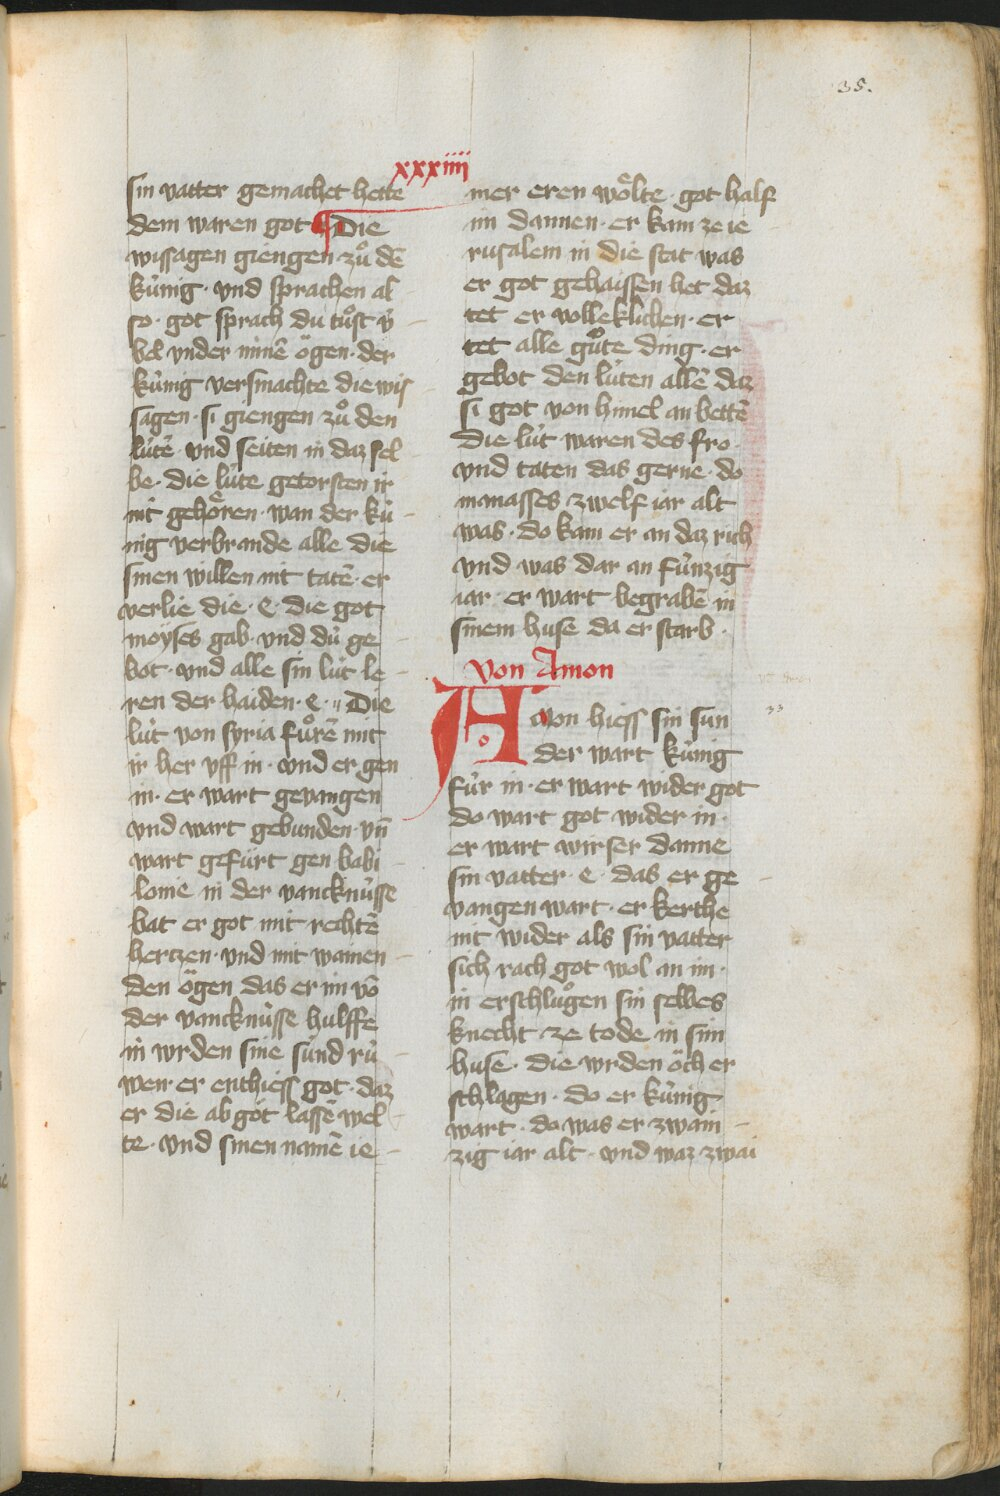 35.
xxxiiii
sin vatter gemachet hette
dem waren got ¶ Die
wissagen giengen zuͦ dē
kúnig · vnd sprachen al
so · got sprach du tuͦst v́
bel vnder minē oͤgen · der
kúnig versmachte die wis
sagen · si giengen zuͦ den
lútē · vnd seiten in daz sel
be · die lúte getorsten ir
nit gehoͤren · wan der kú
nig verbrande alle die
sinen willen nit tatē · er
verlie die · e · die got
moyses gab · vnd dú ge
bot · vnd alle sin lút le
ren der haiden · e · Die
lút von syria fuͦrē mit
ir her vff in · vnd er gen
in · er wart gevangen
vnd wart gebunden · vn̄
wart gefúrt gen babi
lonie in der vancknússe
bat er got mit rechtē
hertzen · vnd mit wainen
den oͤgen das er im vō
der vancknússe hulffe
in wrden sine súnd rú
wen · er enthiess got · daz
er die abgoͤt lassē wel
te · vnd sinen namē ie
mer eren woͤlte · got half
im dannen · er kam ze ie
rusalem in die stat was
er got gehaissen het daz
tet er volleklichen · er
tet alle guͦte ding · er
gebot den lúten allē daz
si got von himel an bettē
die lút waren des fro ·
vnd taten das gerne · do
manasses zwelf iar alt
was · do kam er an daz rich
vnd was dar an fúnzig
iar · er wart begrabē in
sinem huse da er starb ·
Von Amon
Amon hiess sin sun
der wart kúnig
fúr in · er wart wider got
do wart got wider in ·
er wart wirser danne
sin vatter · e · das er ge
vangen wart · er kerthe
nit wider als sin vatter
sich rach got wol an im ·
in erschluͦgen sin selbes
knecht ze tode in sim
huse · die wrden oͤch er
schlagen · do er kúnig
wart · do was er zwain
zig iar alt · vnd waz zwai
33